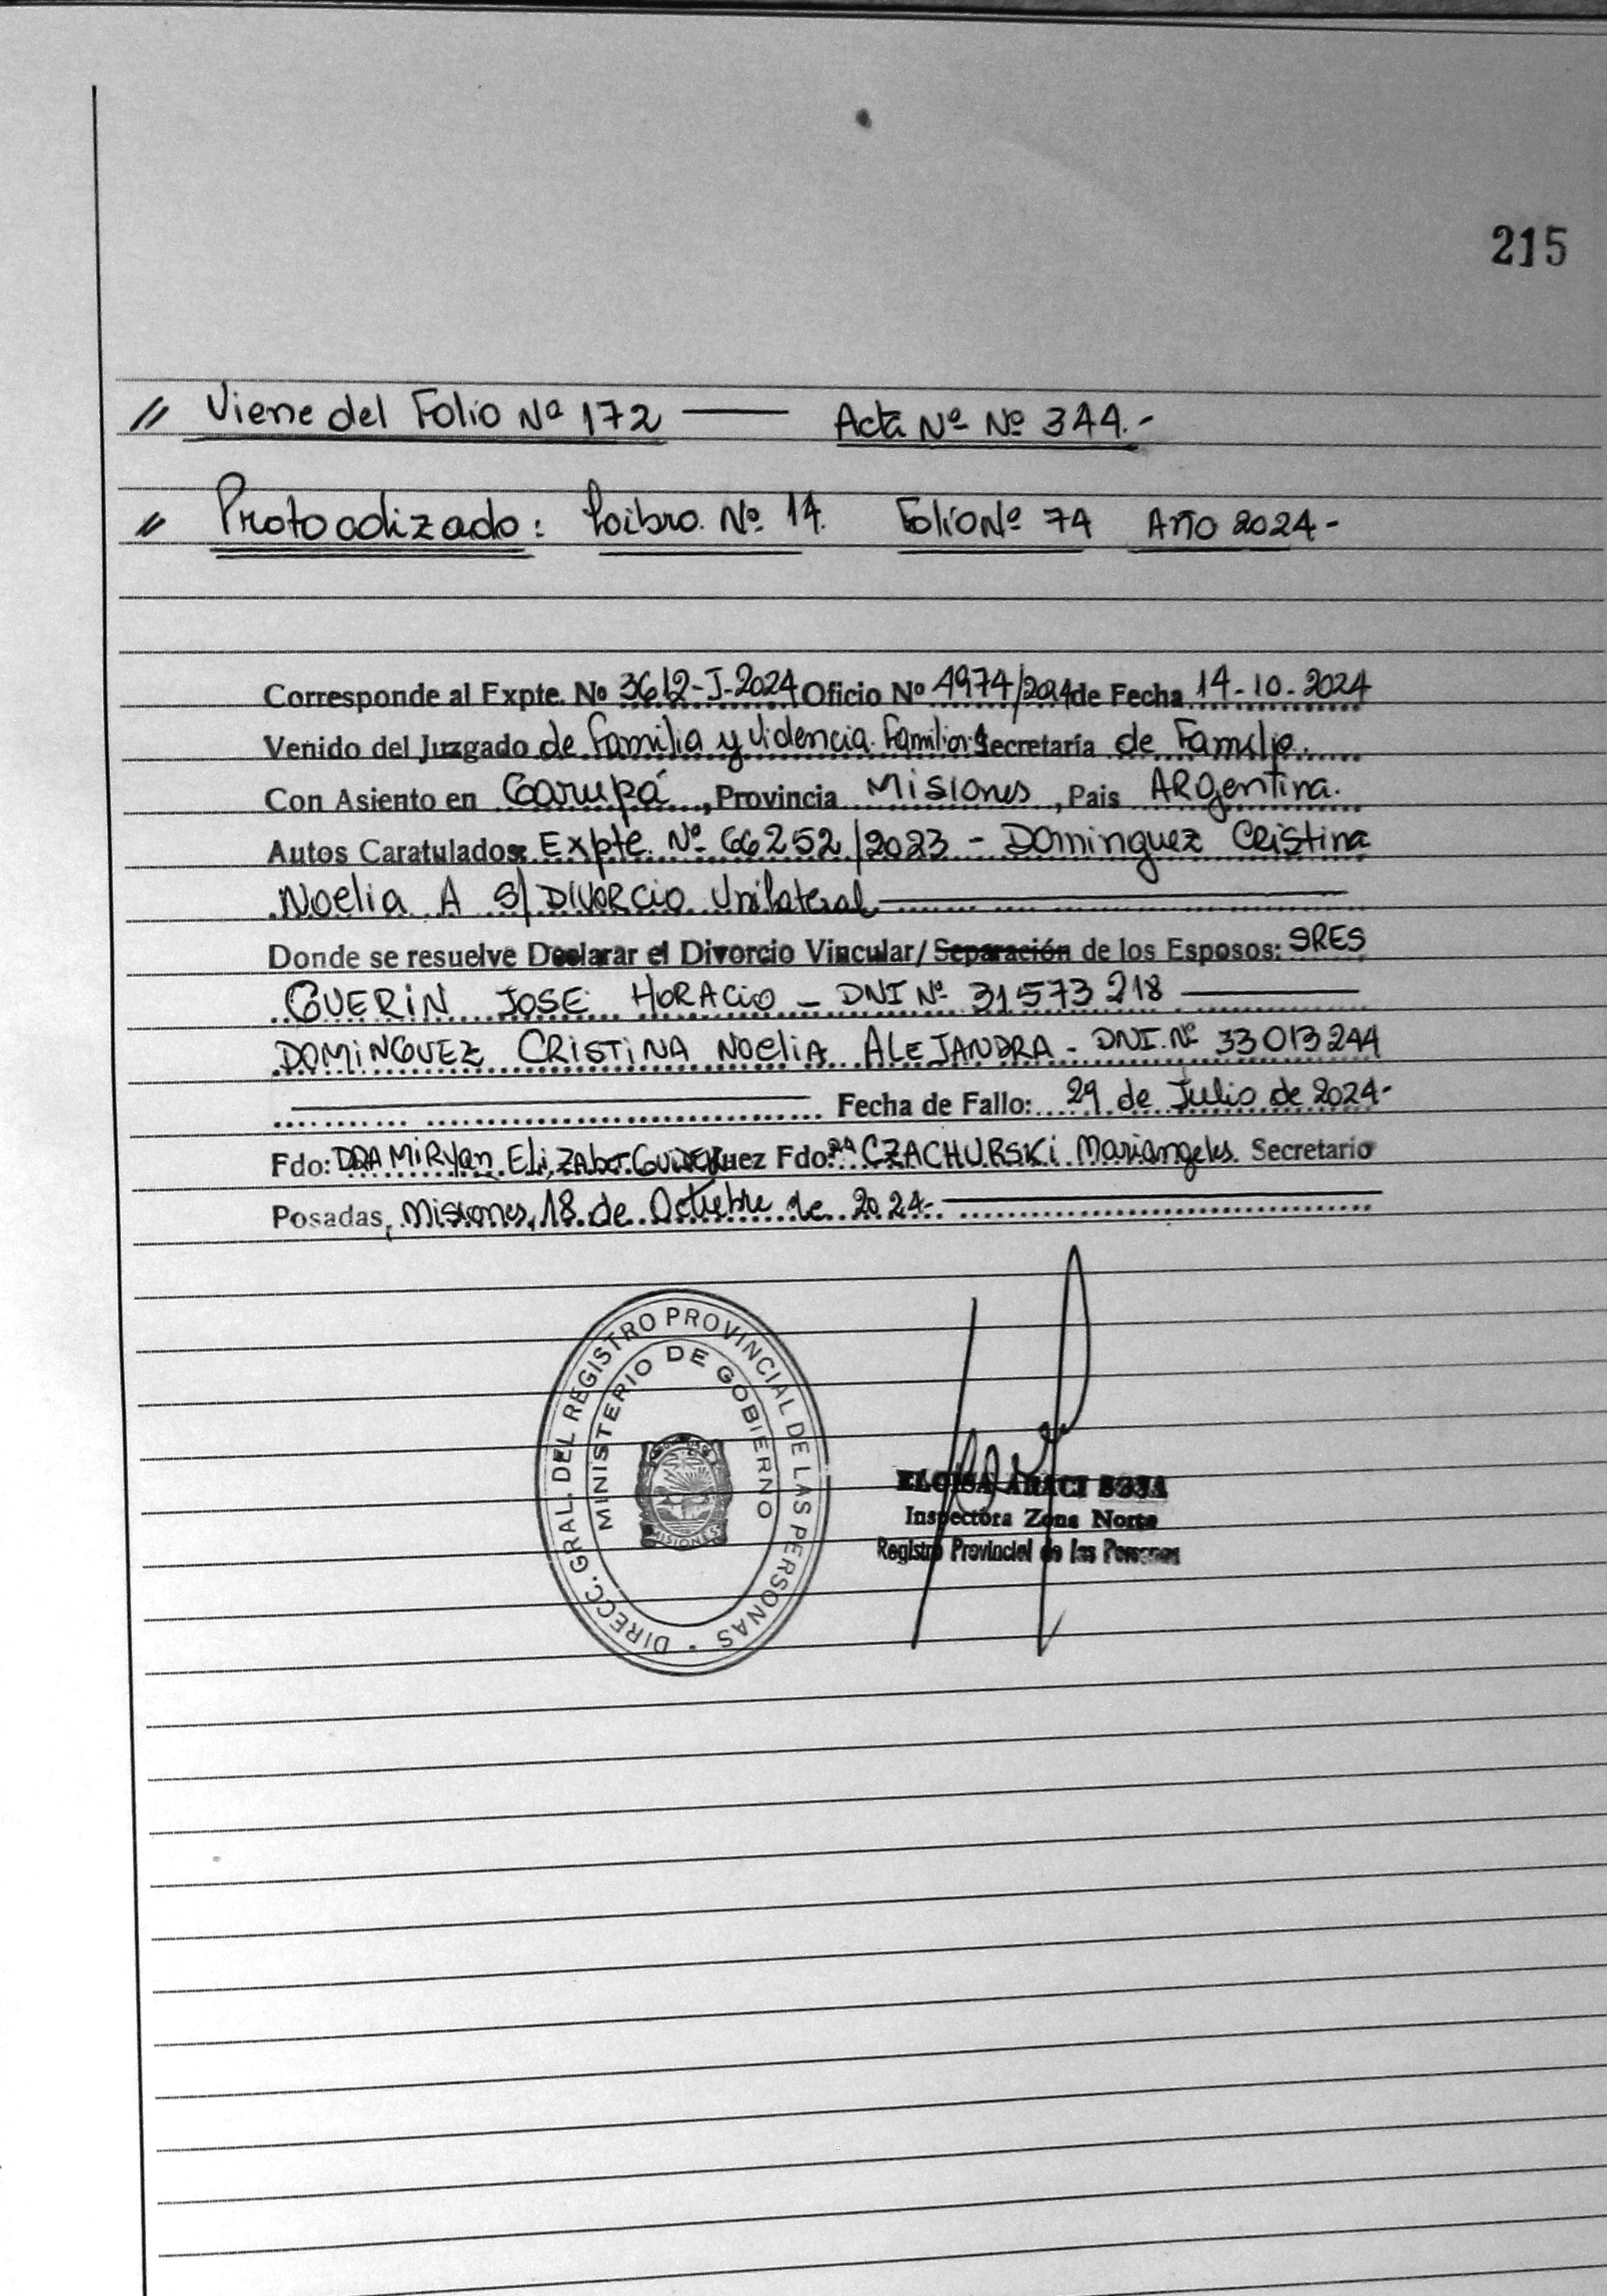 215
// Viene del Folio Nº 172 —— Acta Nº Nº 344.-
// Protocolizado: Libro. Nº 14. Folio Nº 74 Año 2024-
Corresponde al Expte. Nº 3612-J-2024 Oficio Nº 4974/2024 de Fecha 14-10-2024
Venido del Juzgado de Familia y Violencia. Familiar Secretaría de Familia.
Con Asiento en Garupá, Provincia Misiones, Pais ARgentina.
Autos Caratulados: Expte. Nº 66252/2023 - Dominguez Cristina
Noelia A S/ DIVORCIO Unilateral
Donde se resuelve Declarar el Divorcio Vincular/ Separación de los Esposos: SRES
GUERIN JOSE HORACIO - DNI Nº 31573218
DOMINGUEZ CRISTINA NOELIA ALEJANDRA - DNI. Nº 33013244
Fecha de Fallo: 29 de Julio de 2024-
Fdo: DRA MIRYAN ELIZABET Juez Fdo: DRA CZACHURSKI Mariangeles. Secretario
Posadas, Misiones, 18 de Octubre de 2024-
DIRECC. GRAL. DEL REGISTRO PROVINCIAL DE LAS PERSONAS
MINISTERIO DE GOBIERNO
MISIONES
ELOISA ARACI SOSA
Inspectora Zona Norte
Registro Provincial de las Personas